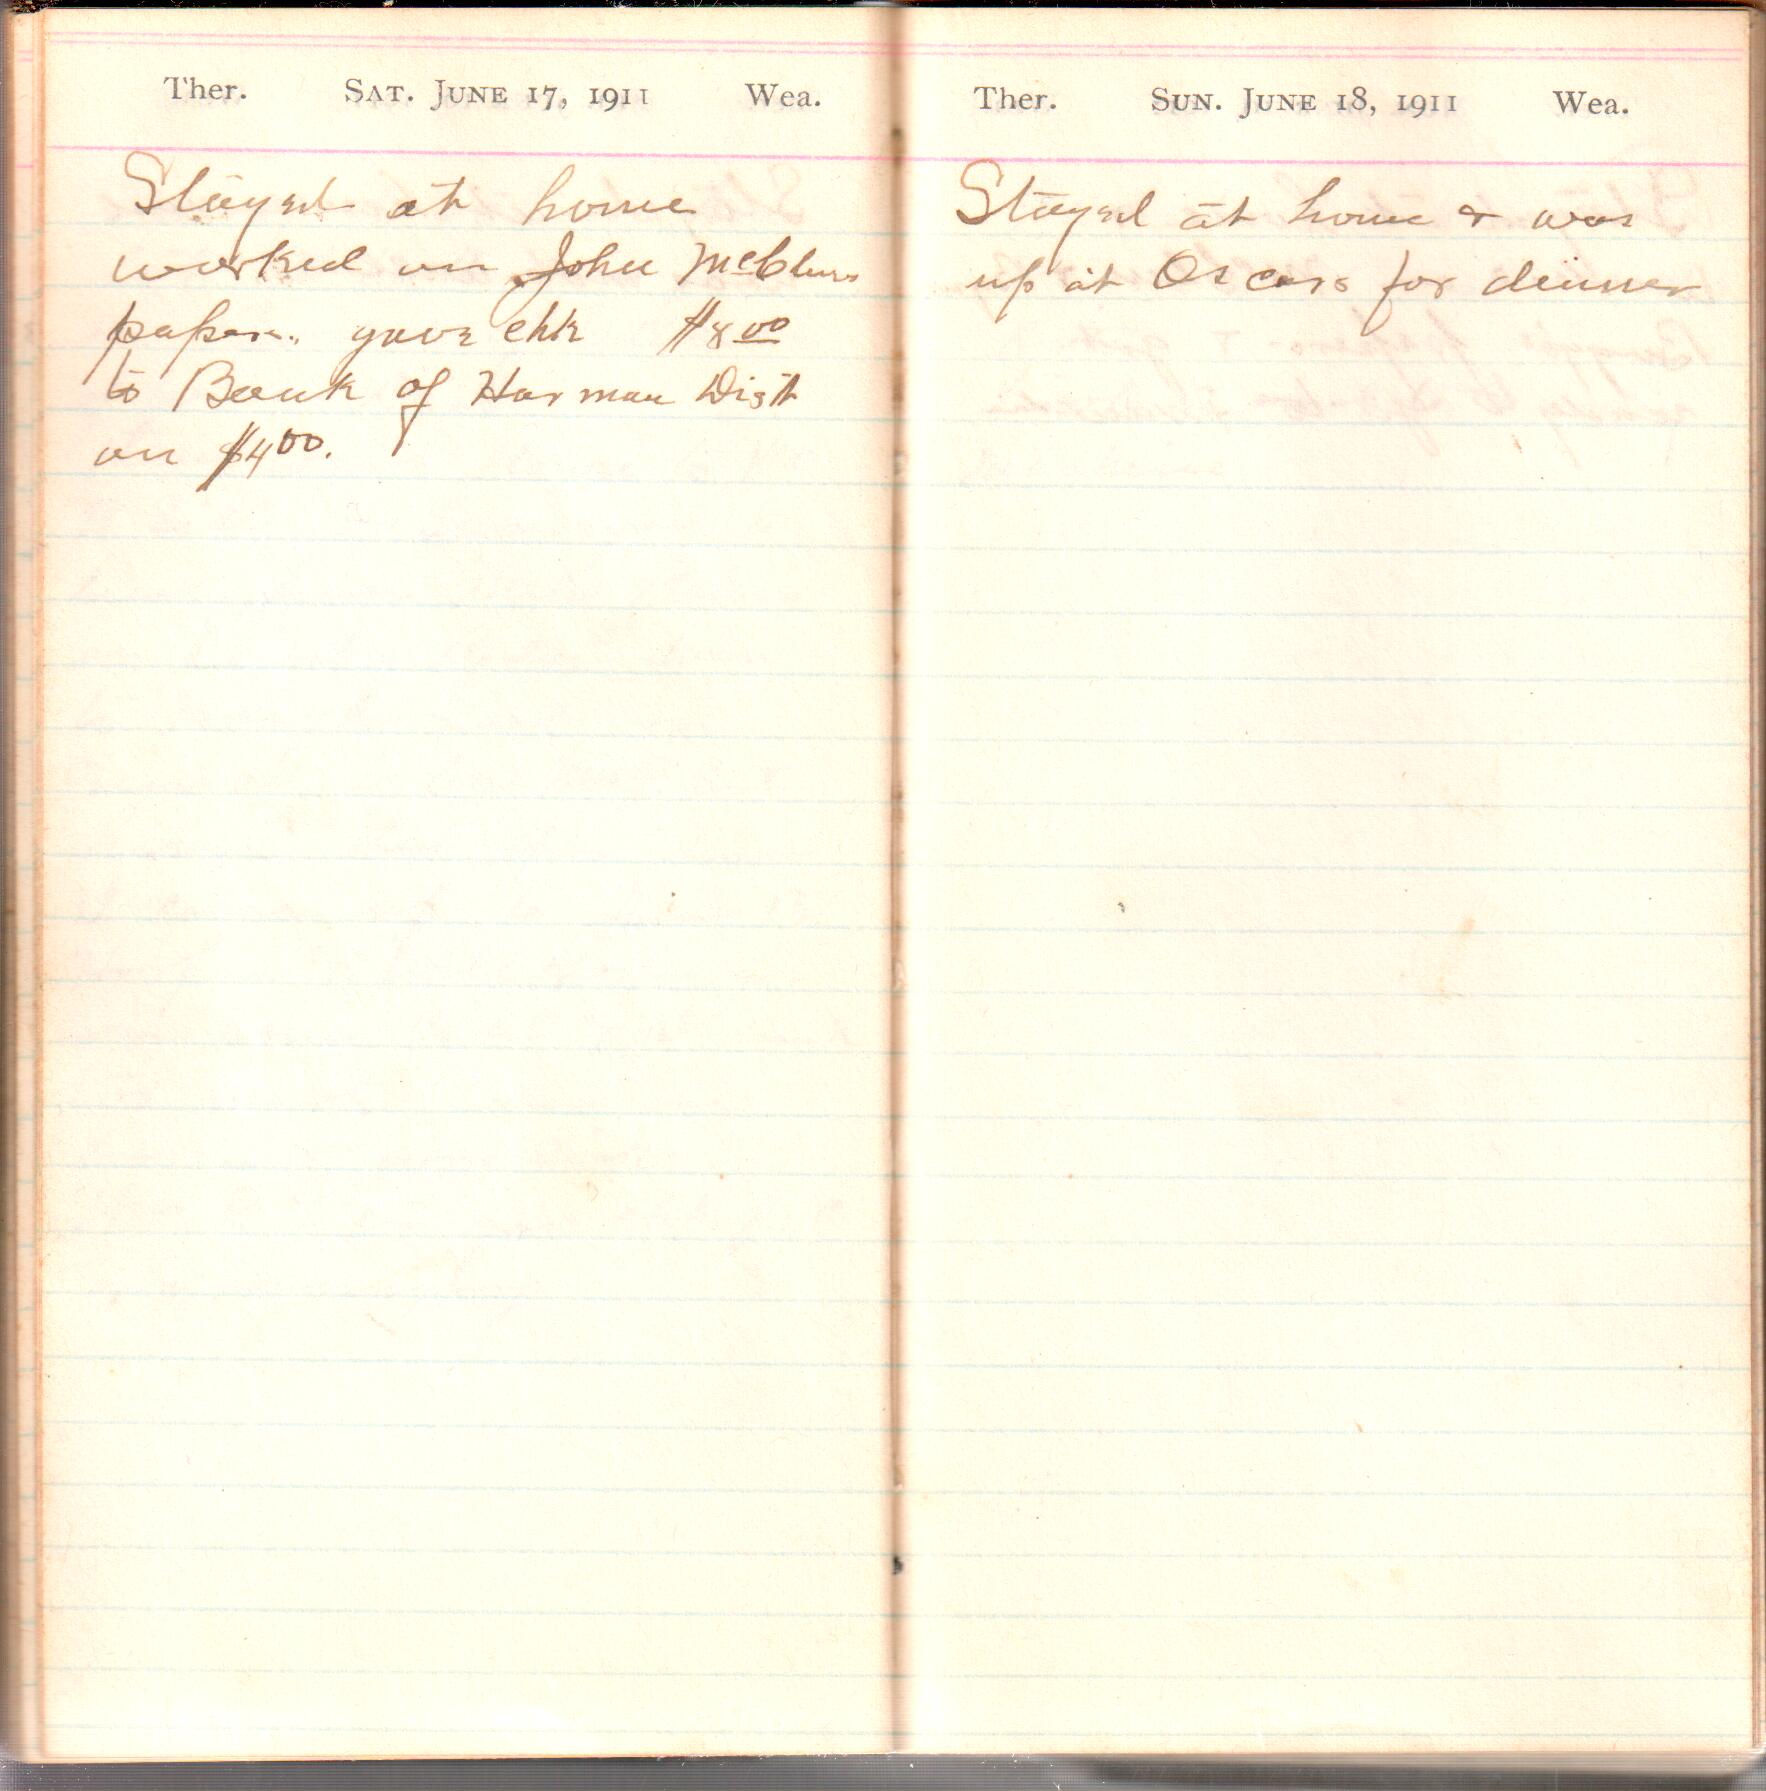 Ther. Sat. June 17, 1911 Wea.
Stayed at home
worked on John McClurs
papers. gave chk $8.00
to Bank of Harman Dist
on $4.00.
Ther. Sun. June 18, 1911 Wea.
Stayed at home & was
up at Oscars for dinner